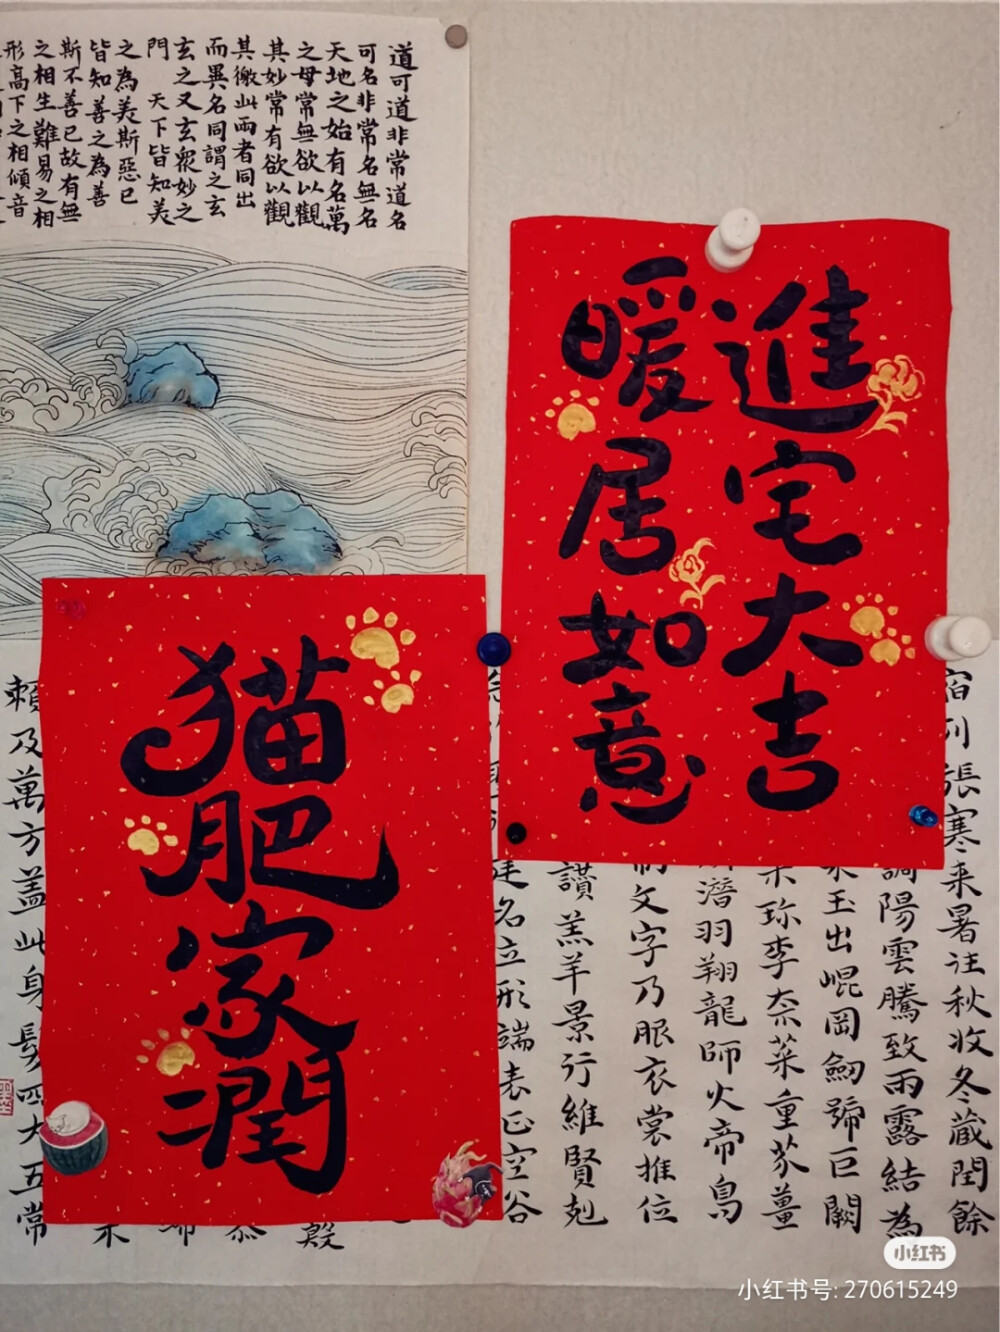 道可道非常道名
可名非常名無名
天地之始有名萬
之母常無欲以觀
其妙常有欲以觀
其徼此兩者同出
而異名同謂之玄
玄之又玄眾妙之
門 天下皆知美
之為美斯惡已
皆知善之為善
斯不善已故有無
之相生難易之相
形高下之相傾音
進宅大吉
暖居如意
猫肥家潤
宿列張寒来暑往秋收冬蔵閏餘
調陽雲騰致雨露結為
玉出崐岡劒號巨闕
珎李柰菜重芥薑
潛羽翔龍師火帝鳥
文字乃服衣裳推位
讚羔羊景行維賢剋
名立形端表正空谷
賴及萬方蓋此身髮四大五常
小红书
小红书号: 270615249